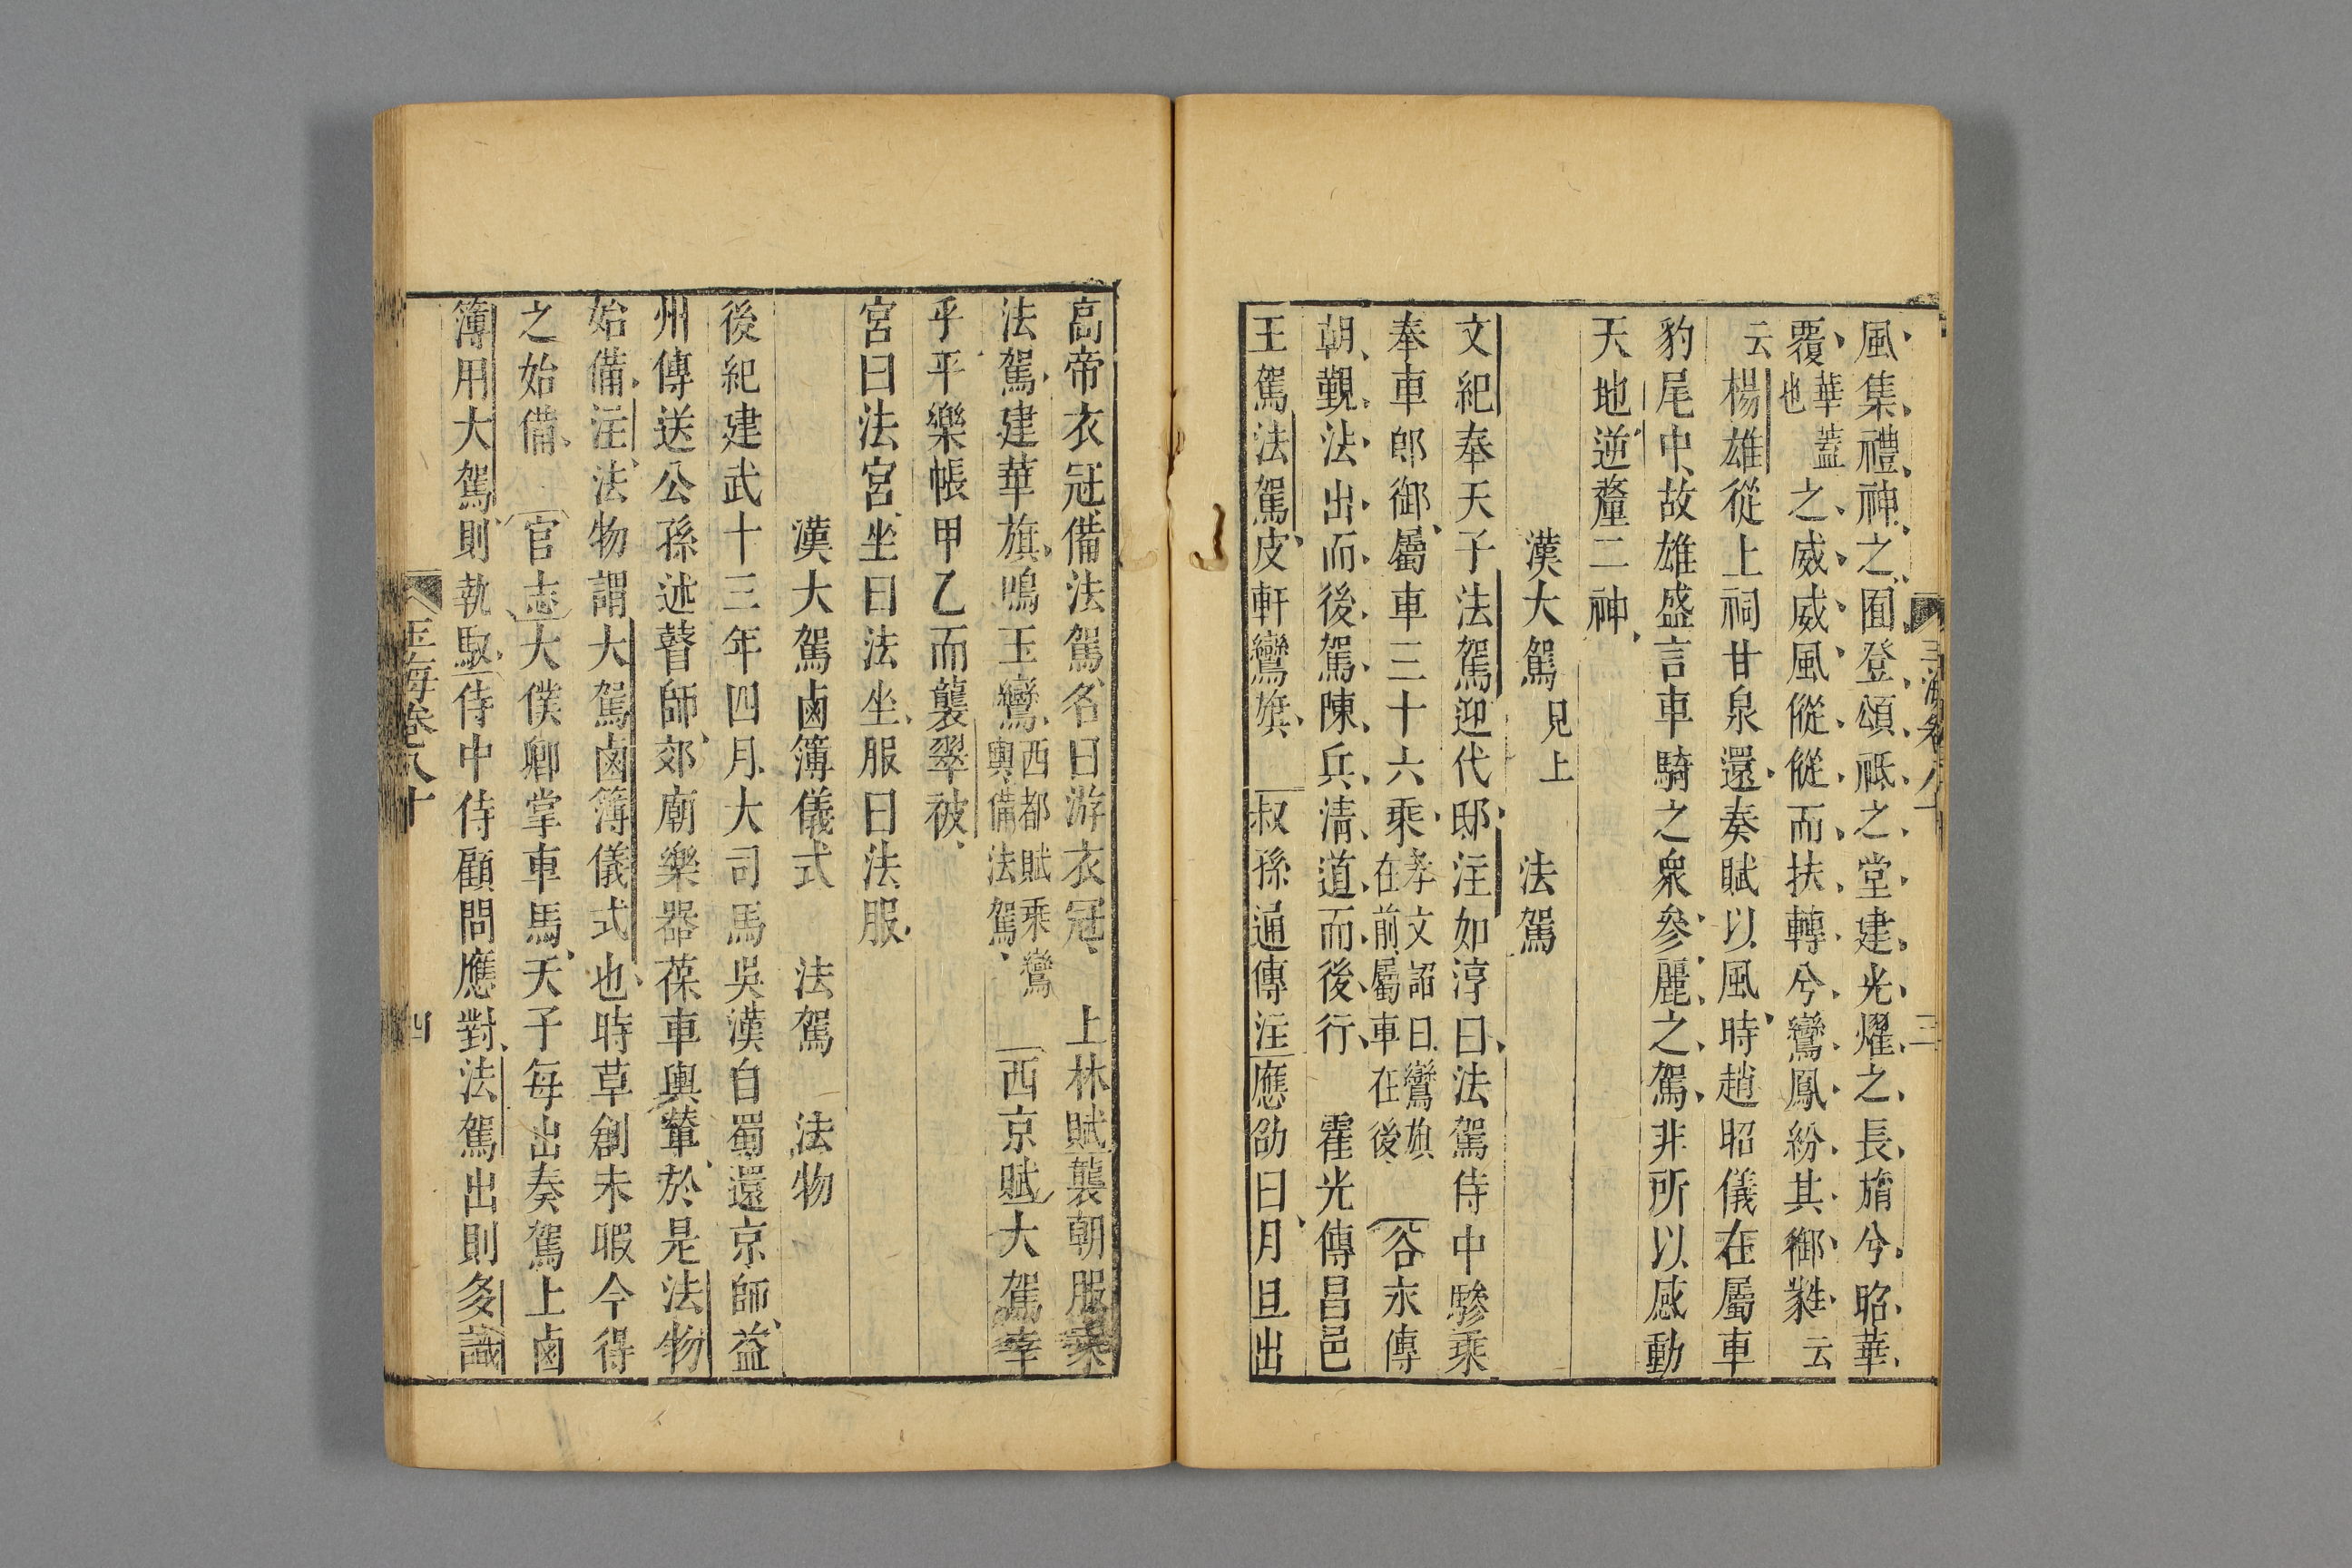 風集禮神之囿登頌祗之堂建光燿之長旓兮昭華
覆華蓋也之威威風傱傱而扶轉兮鸞鳳紛其御蕤云
云楊雄從上祠甘泉還奏賦以風時趙昭儀在屬車
豹尾中故雄盛言車騎之衆參麗之駕非所以感動
天地逆釐二神
漢大駕見上　法駕
文紀奉天子法駕迎代邸注如淳曰法駕侍中驂乘
奉車郎御屬車三十六乘孝文詔曰鸞旗在前屬車在後　谷永傳
朝覲法出而後駕陳兵清道而後行　霍光傳昌邑
王駕法駕皮軒鸞旗　叔孫通傳注應劭曰月旦出
高帝衣冠備法駕名曰游衣冠　上林賦襲朝服乘
法駕建華旗鳴玉鸞西都賦乘鸞輿備法駕　西京賦大駕幸
乎平樂帳甲乙而襲翠被
宮曰法宮坐曰法坐服曰法服
漢大駕鹵簿儀式　法駕　法物
後紀建武十三年四月大司馬吳漢自蜀還京師益
州傳送公孫述瞽師郊廟樂器葆車輿輦於是法物
始備注法物謂大駕鹵簿儀式也時草創未暇今得
之始備　官志大僕卿掌車馬天子每出奏駕上鹵
簿用大駕則執馭侍中侍顧問應對法駕出則多識
玉海卷八十　四